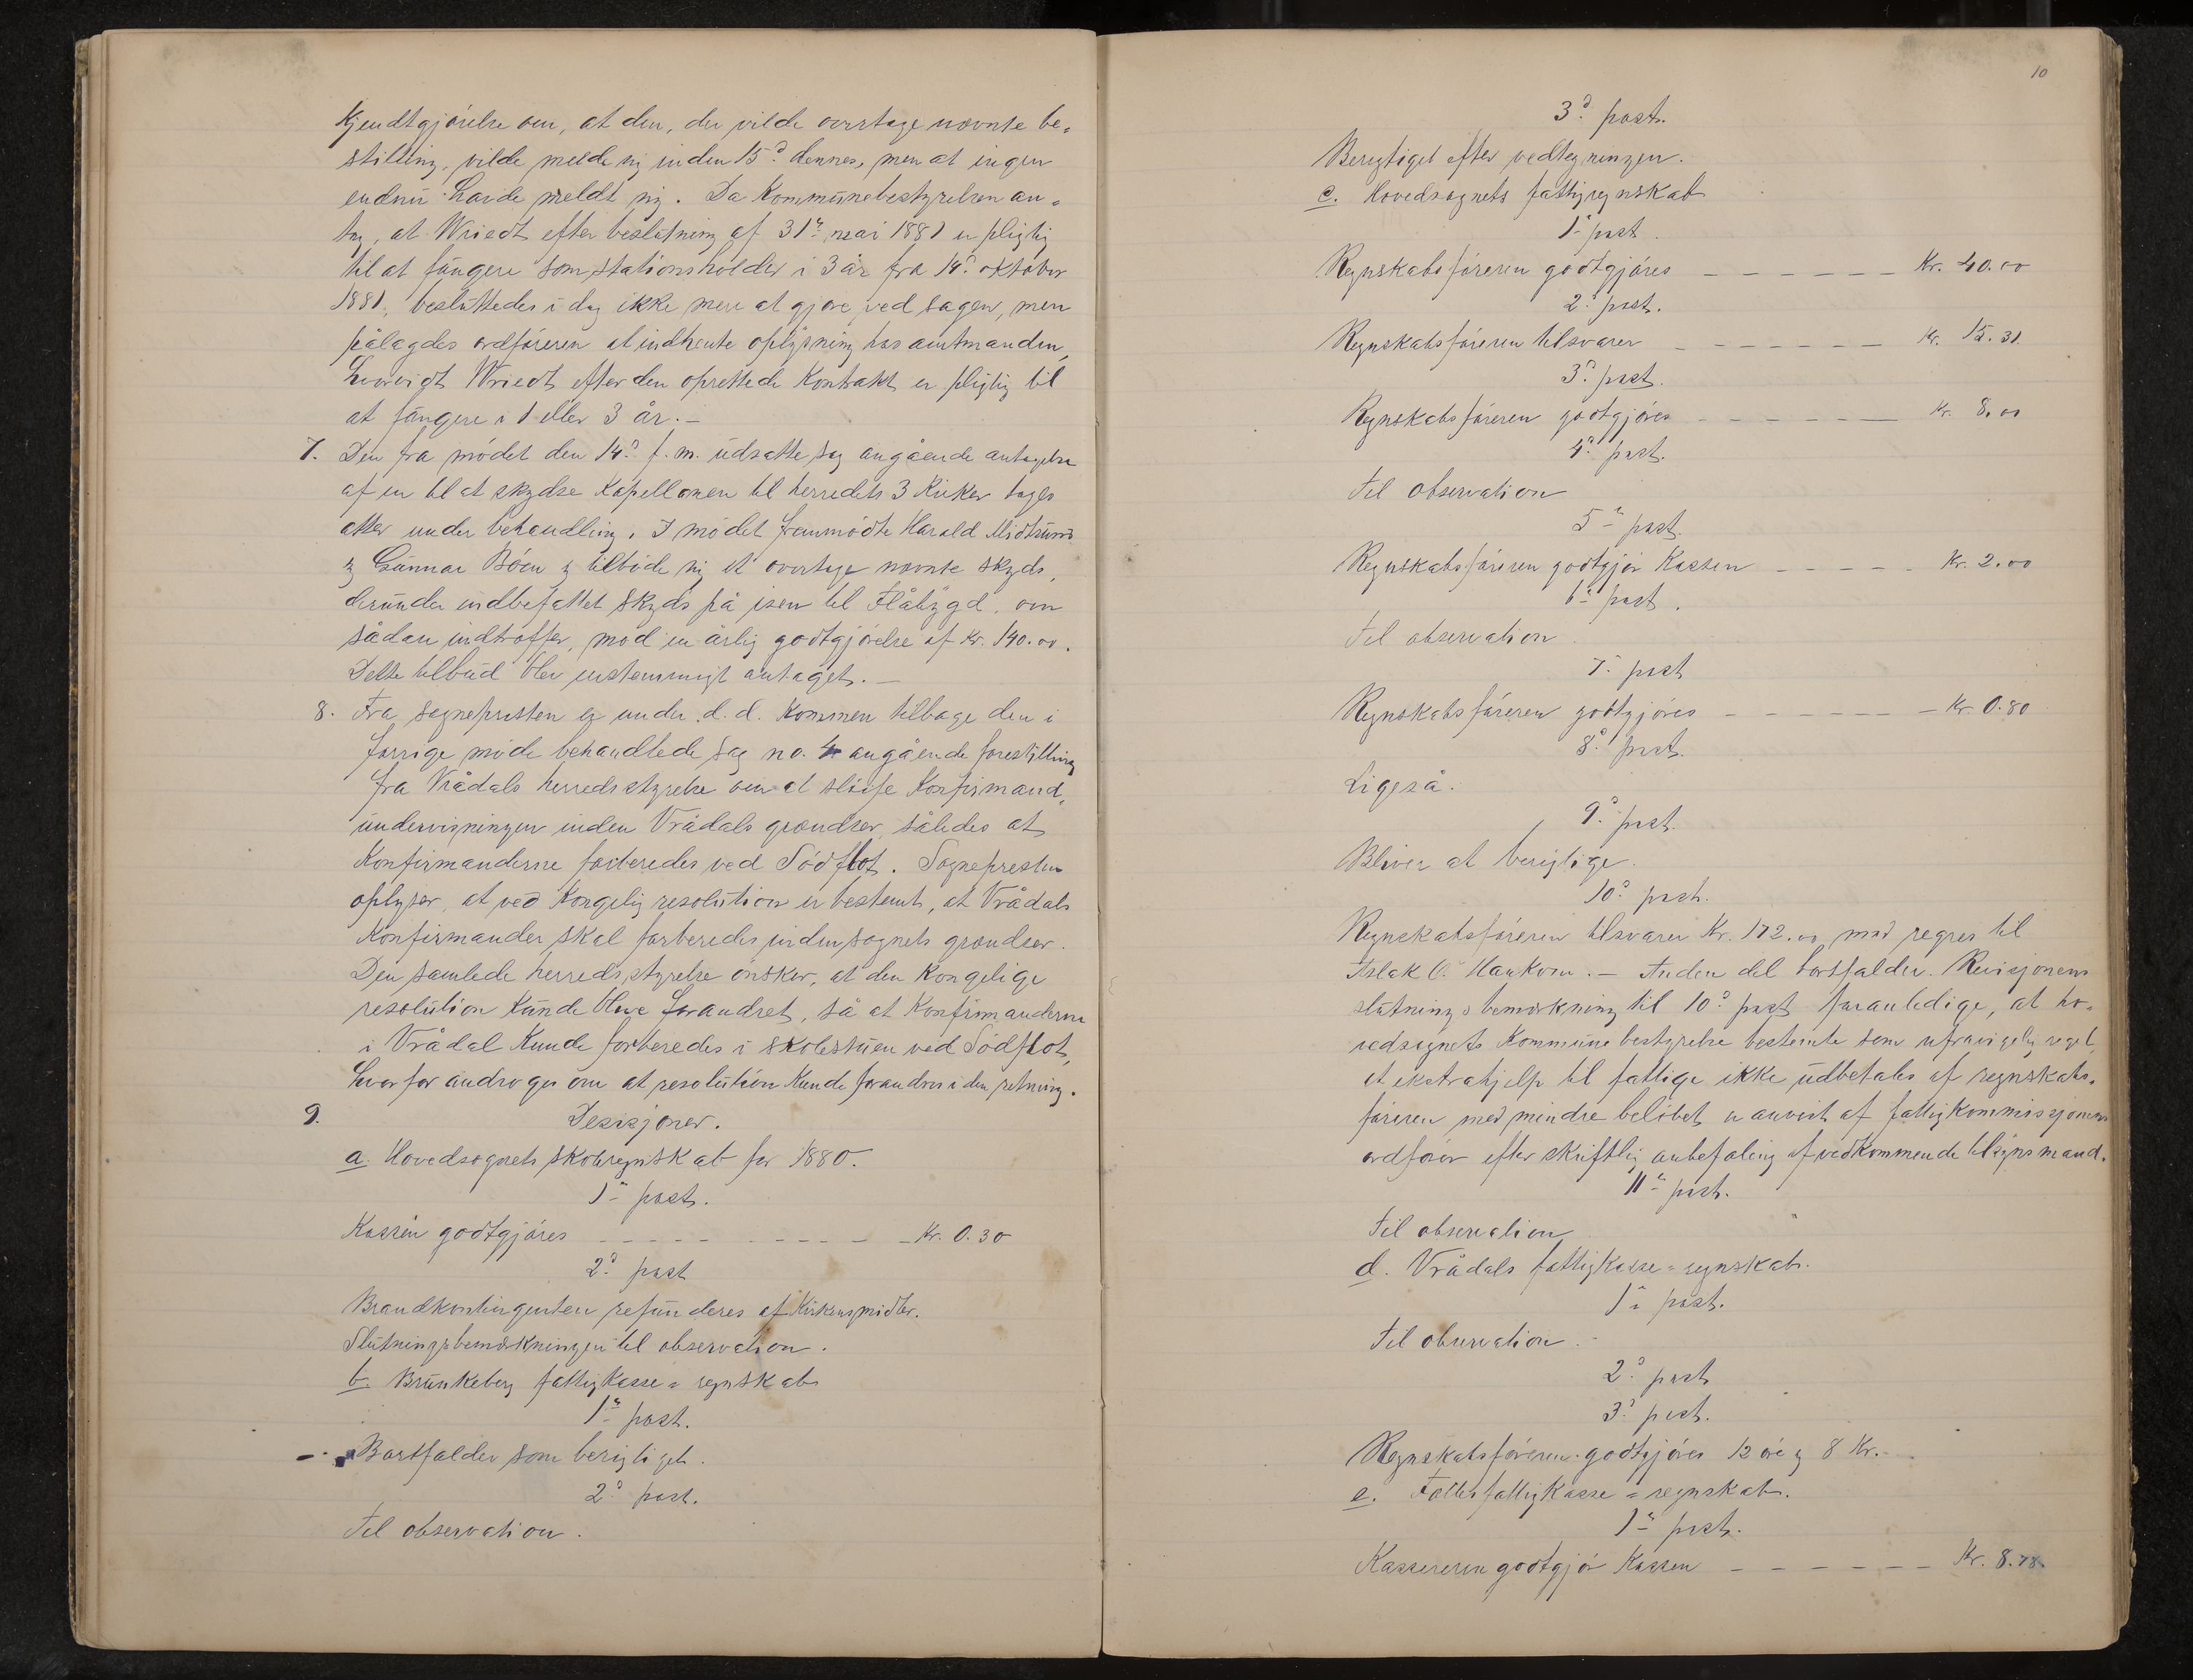 Kjendtgjørelse om, at den, der vilde overtage nævnte be-
stilling, vilde melde sig inden 15de dennes, men at ingen
endnu havde meldt sig. Da Kommunebestyrelsen an-
tog, at Wriedt efter beslutning af 31te mai 1881 er pligtig
til at fungere som stationsholder i 3 år fra 14de oktober
1881, besluttedes i dag ikke mere at gjøre ved sagen, men
pålagdes ordføreren at indhente oplysning hos amtmanden,
hvorvidt Wriedt efter den oprettede Kontrakt er pligtig til
at fungere i 1 eller 3 år. –
7. Den fra mødet den 14de f. m. udsatte sag angående antagelse
af en til at skydse Kapellanen til herredets 3 Kirker toges
atter under behandling. I mødet fremmødte Harald Midtsund
og Gunnar Böen og tilböde sig at overtage nævnte skyds,
derunder indbefattet skyds på isen til Flåbygd, om
sådan indtræffer, mod en årlig godtgjørelse af Kr. 140.00.
Dette tilbud blev enstemmigt antaget. –
8. Fra sognepresten er under d. d. Kommen tilbage den i
forrige möde behandlede sag no. 4 angående forestilling
fra Vrådals herredsstyrelse om at sløife Konfirmand-
undervisningen inden Vrådals grændser, således at
Konfirmanderne forberedes ved Södflot. Sognepresten
oplyser, at ved Kongelig resolution er bestemt, at Vrådals
Konfirmander skal forberedes inden sognets grændser.
Den samlede herredsstyrelse önsker, at den Kongelige
resolution Kunde blive forandret, så at Konfirmanderne
i Vrådal Kunde forberedes i skolestuen ved Södflot,
hvorfor androges om at resolution Kunde forandres i den retning.
9. Desisjoner.
a. Hovedsognets skoleregnskab for 1880.
1ste post.
Kassen godtgjöres – – – – – – – – – Kr. 0.30
2den post
Brandkontingenten refunderes af Kirkens midler.
Slutningsbemærkningen til observation.
b. Brunkeberg fattigkasse-regnskab
1ste post.
Bortfalder som berigtiget.
2den post.
Til observation.
10
3de post.
Berigtiget efter vedtegningen.
c. Hovedsognets fattigregnskab
1ste post.
Regnskabsføreren godtgjöres – – – – – – Kr. 40.00
2den post.
Regnskabsføreren tilsvarer – – – – – – Kr. 15.31
3de post.
Regnskabsføreren godtgjöres – – – – – – Kr. 8.00
4de post.
Til observation
5te post.
Regnskabsføreren godtgjör Kassen – – – – – Kr. 2.00
6te post.
Til observation
7de post
Regnskabsføreren godtgjöres – – – – – – Kr. 0.80
8de post.
Ligeså.
9de post.
Bliver at berigtige.
10de post.
Regnskabsføreren tilsvarer Kr. 172.00 med regres til
Aslak O. Haukom. – Anden del bortfalder. Revisjonens
slutningsbemærkning til 10de post foranledige, at ho-
vedsognets Kommunebestyrelse bestemte som ufravigelig regel,
at ekstrahjelp til fattige ikke udbetales af regnskabs-
føreren med mindre belöbet er anvist af fattigkommissjonens
ordförer efter skriftlig anbefaling af vedkommende tilsynsmand.
11te post.
Til observation
d. Vrådals fattigkasse-regnskab.
1ste post.
Til observation
2den post
3de post.
Regnskabsføreren godtgjöres 12 öre og 8 Kr. –
e. Fælles fattigkasse-regnskab.
1ste post.
Kassereren godtgjör Kassen – – – – – – Kr. 8.78